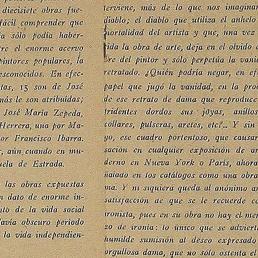 diecisiete obras fue-
fácil comprender que
a sólo podía haber-
re el enorme acervo
pintores populares, la
esconocidos. En efec-
tas, 15 son de José
más le son atribuidas;
José María Zepeda,
Herrera, una por Ma-
or Francisco Ibarra.
r, aún cuando en mu-
uela de Estrada.
las obras expuestas
n dato de enorme in-
to de la vida social
avía obscuro período
la vida independien-
terviene, más de lo que nos imaginam
diablo; el diablo que utiliza el anhelo
ortalidad del artista y que, una vez
ida la obra de arte, deja en el olvido a
re del pintor y sólo perpetúa la vanid
retratado. ¿Quién podría negar, en ef
papel que jugó la vanidad, en la prod
de ese retrato de dama que reproduce
tridentes gordos sus joyas, anillos
collares, pulseras, aretes, etc.? Y sin
yo, ese cuadro portentoso, que causar
ación en cualquier exposición de ar
derno en Nueva York o París, ahora
talado en los catálogos como una obra
ma. Y ni siquiera queda al anónimo a
satisfacción de que se le recuerde co
ronista, pues en su obra no hay el mer
zo de ironía: lo único que se advierte
humilde sumisión al deseo expresado
orgullosa dama, que no sólo ostenta el